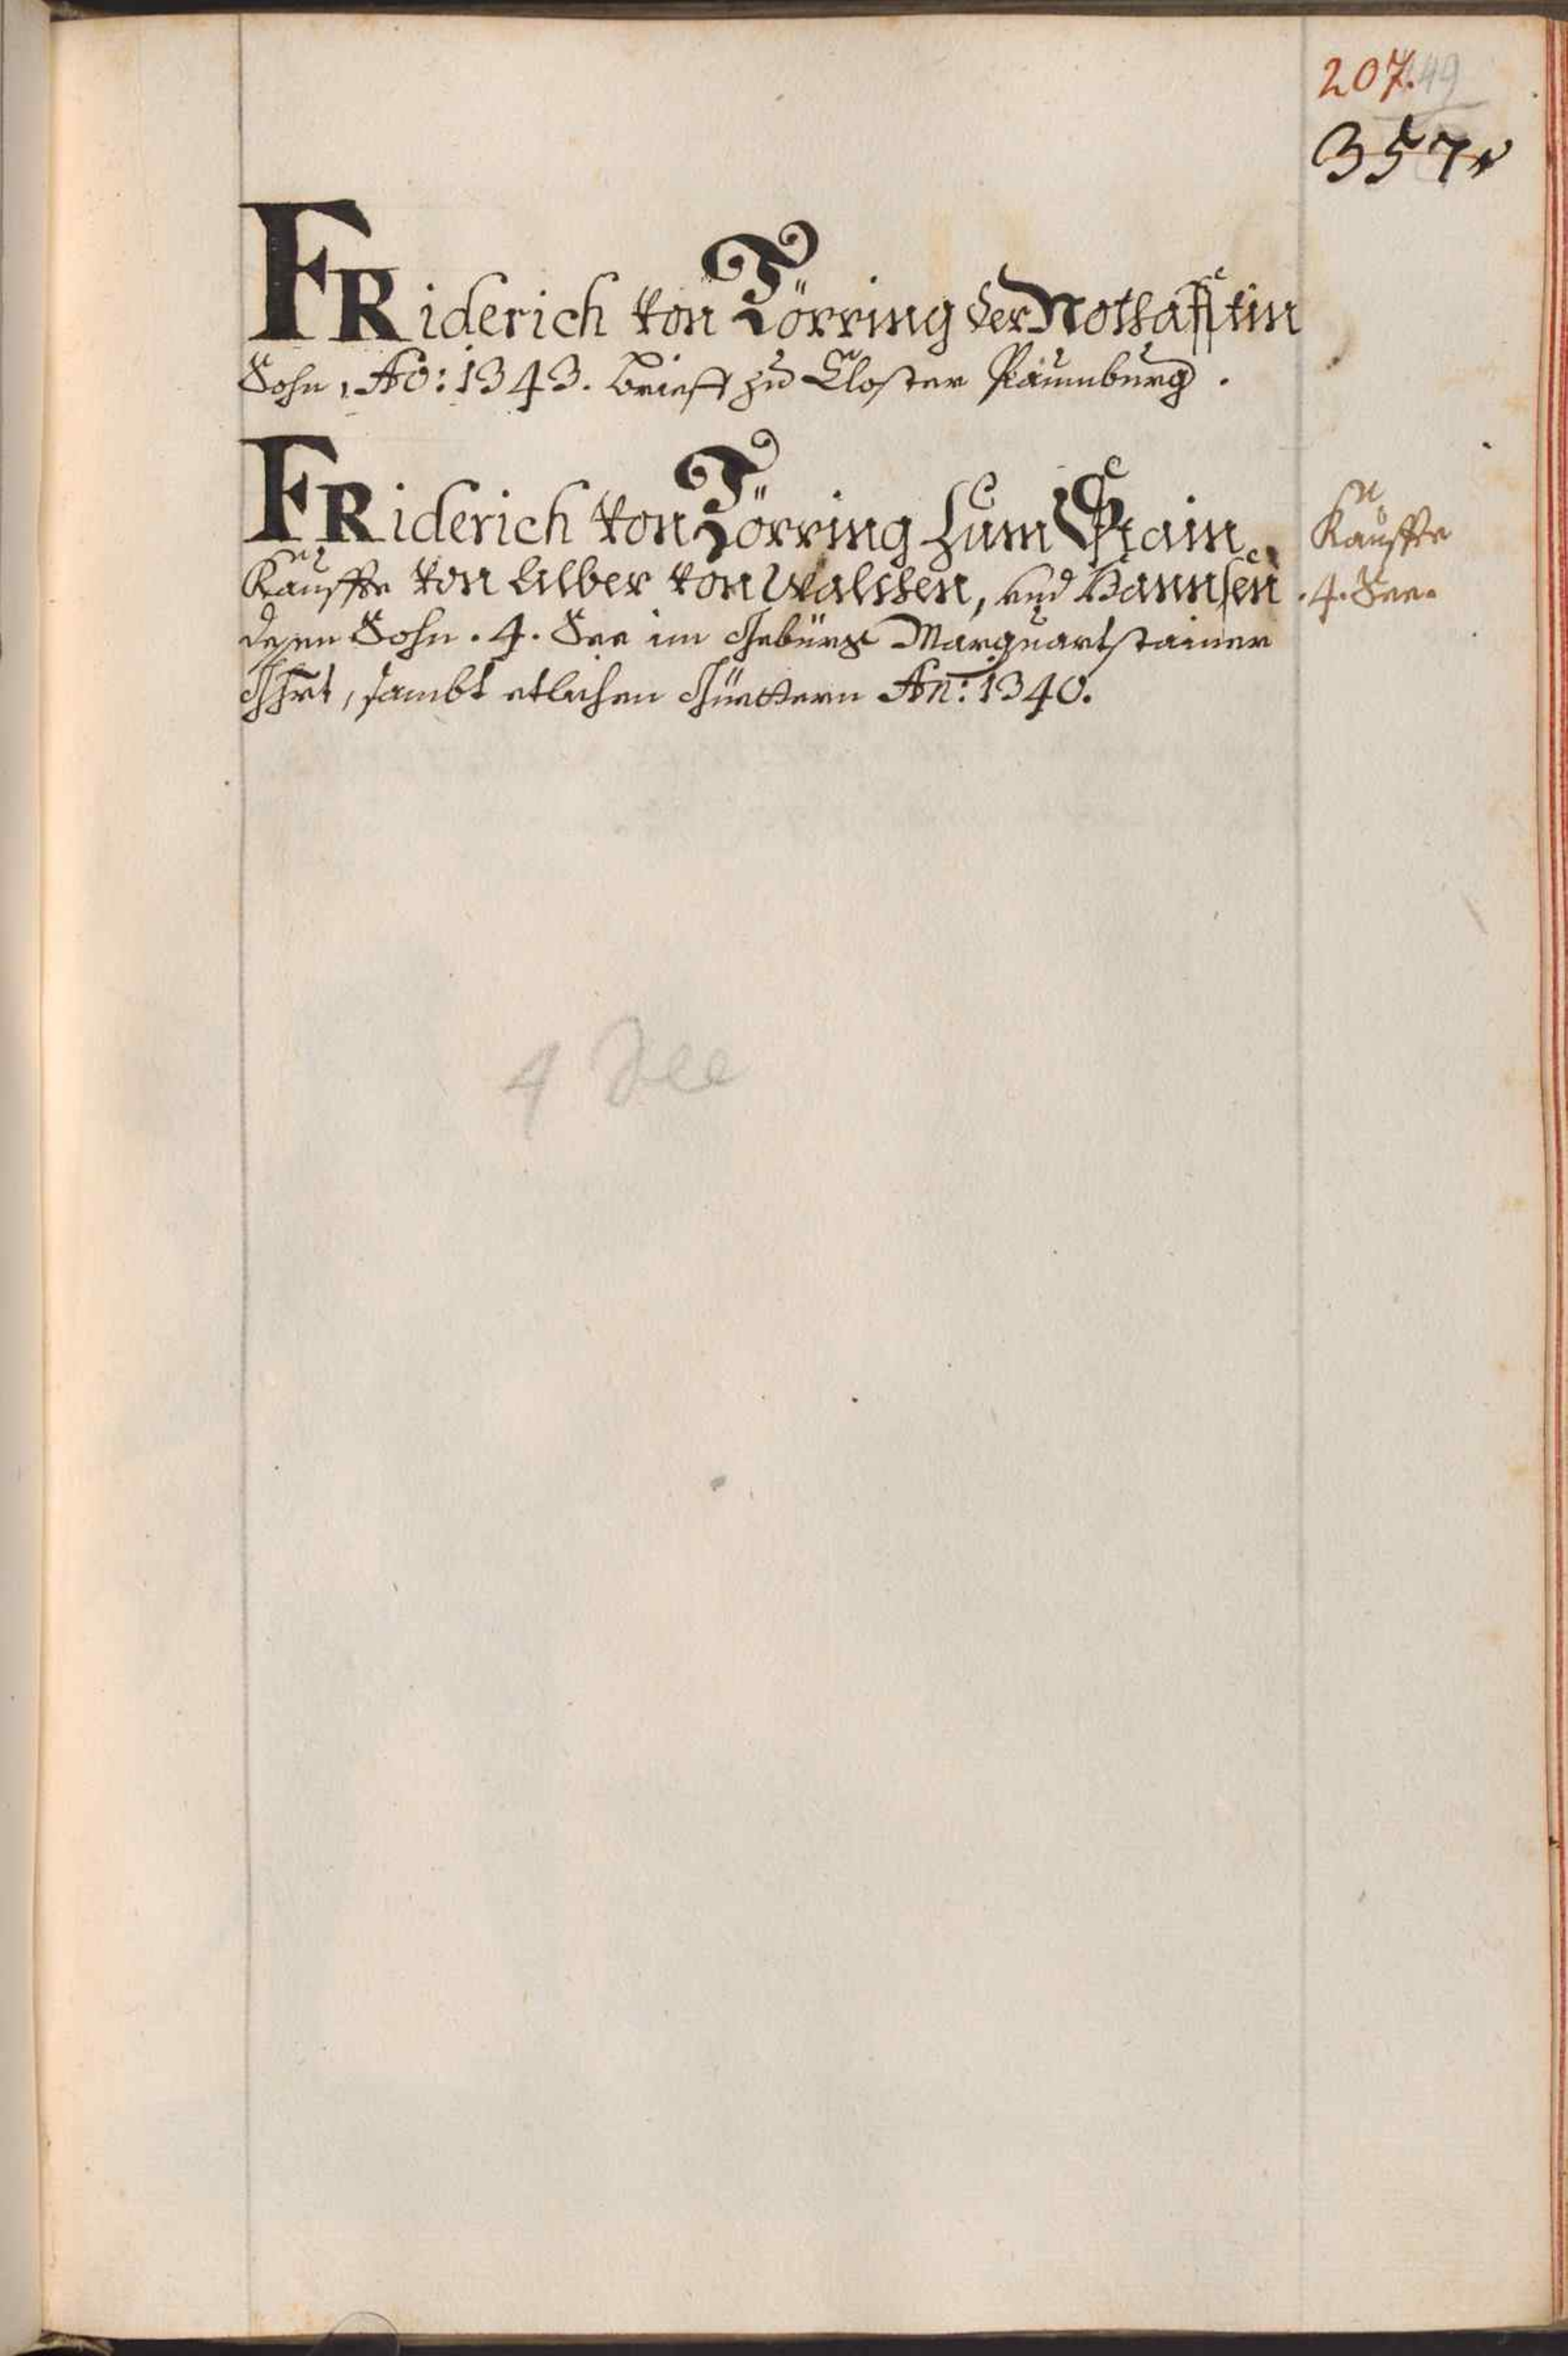 207.
449
357
FRiderich von Törring der Nothafftin
Sohn, Ao: 1343. Brieff zu Closter Paumburg.
FRiderich von Törring zum Stain
Kauffte von Alber von Walchen, und Hannsen
deßen Sohn. 4. See im Gebürg Marquartstainer
Ghrt, sambt etlichen Güettern An: 1340.
Kauffte
.4. See.
4 See